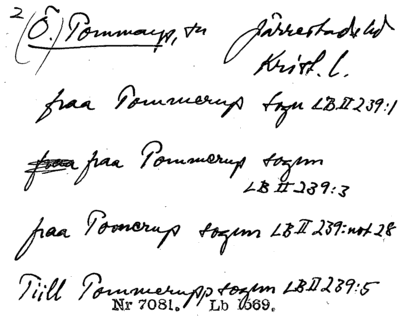 2 (Ö.) Tommarp, sn Järrestads hd
Krist. l.
fraa Tommerup sogn LB II 239:1
fraa Tommerup sognn
LB II 239:3
fraa Tomerup sognn LB II 239:not 28
Tiill Tommerupp sognn LB II 239:5
Nr 7081. Lb 1669.